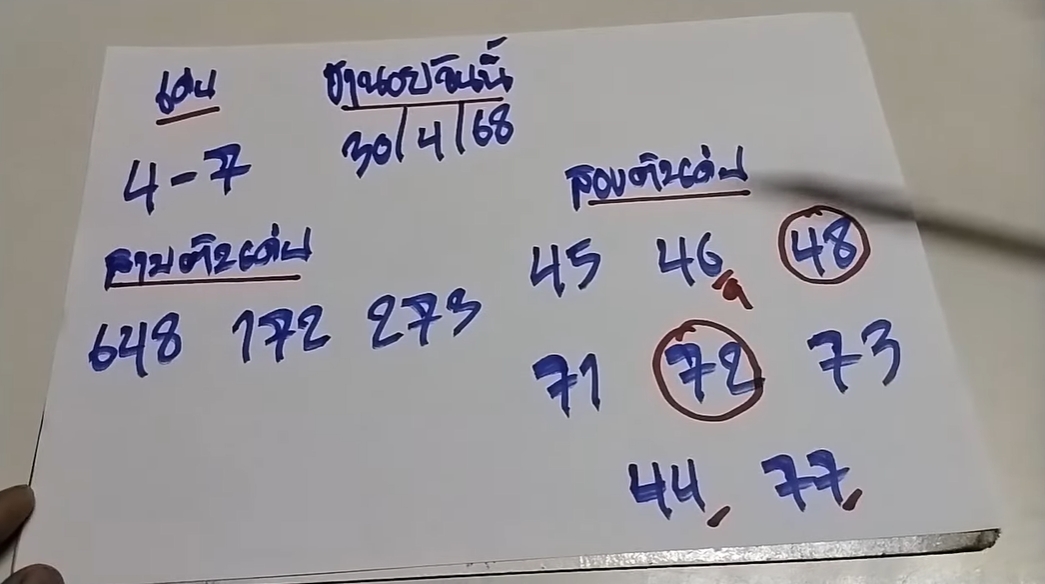 เด่น
ฮานอยวันนี้
4-7
30/4/68
สามตัวเด่น
648 172 273
สองตัวเด่น
45 46 48
71 72 73
44 77